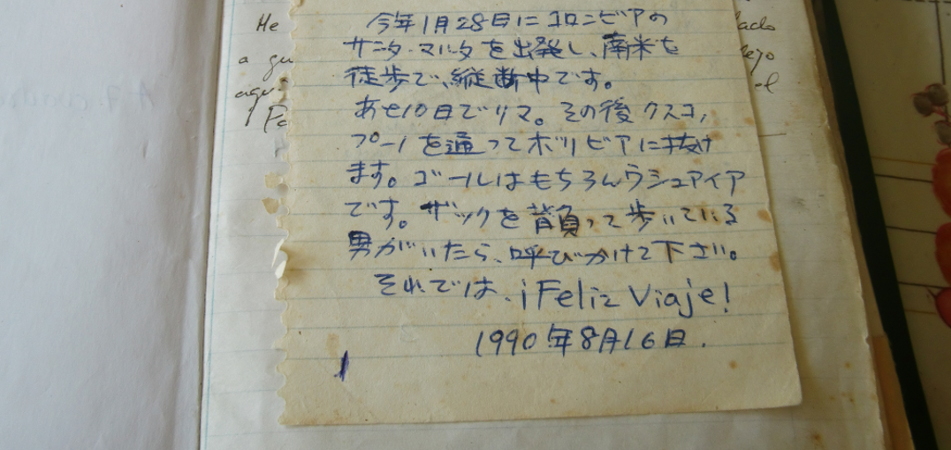 He
今年1月28日にコロンビアの
サンタ・マルタを出発し、南米を
徒歩で、縦断中です。
あと10日でリマ。その後クスコ,
プーノを通ってボリビアに抜け
ます。ゴールはもちろんウシュアイア
です。ザックを背負って歩いている
男がいたら、呼びかけて下さい。
それでは、¡Feliz Viaje!
1990年8月16日.